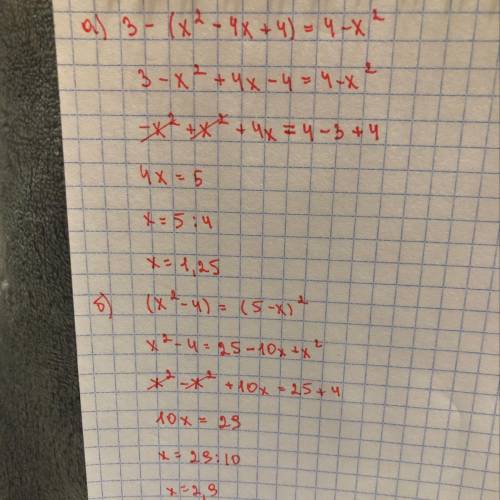 а) 3 - (x² - 4x + 4) = 4 - x²
3 - x² + 4x - 4 = 4 - x²
-x² + x² + 4x = 4 - 3 + 4
4x = 5
x = 5 : 4
x = 1,25
б) (x² - 4) = (5 - x)²
x² - 4 = 25 - 10x + x²
x² - x² + 10x = 25 + 4
10x = 29
x = 29 : 10
x = 2,9